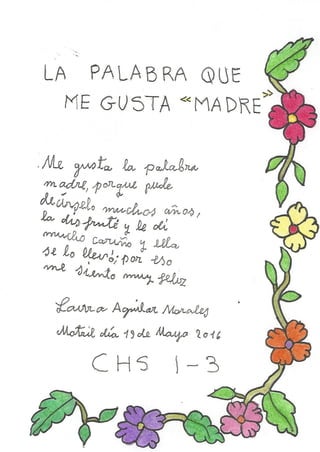 LA PALABRA QUE
ME GUSTA «MADRE»
.Me gusta la palabra
madre, porque pude
decírselo muchos años,
la disfruté y le di
mucho cariño y ella
se lo llevó; por eso
me siento muy feliz
Laura Aguilar Morales
Motril día 19 de Mayo 2016
CHS 1-3